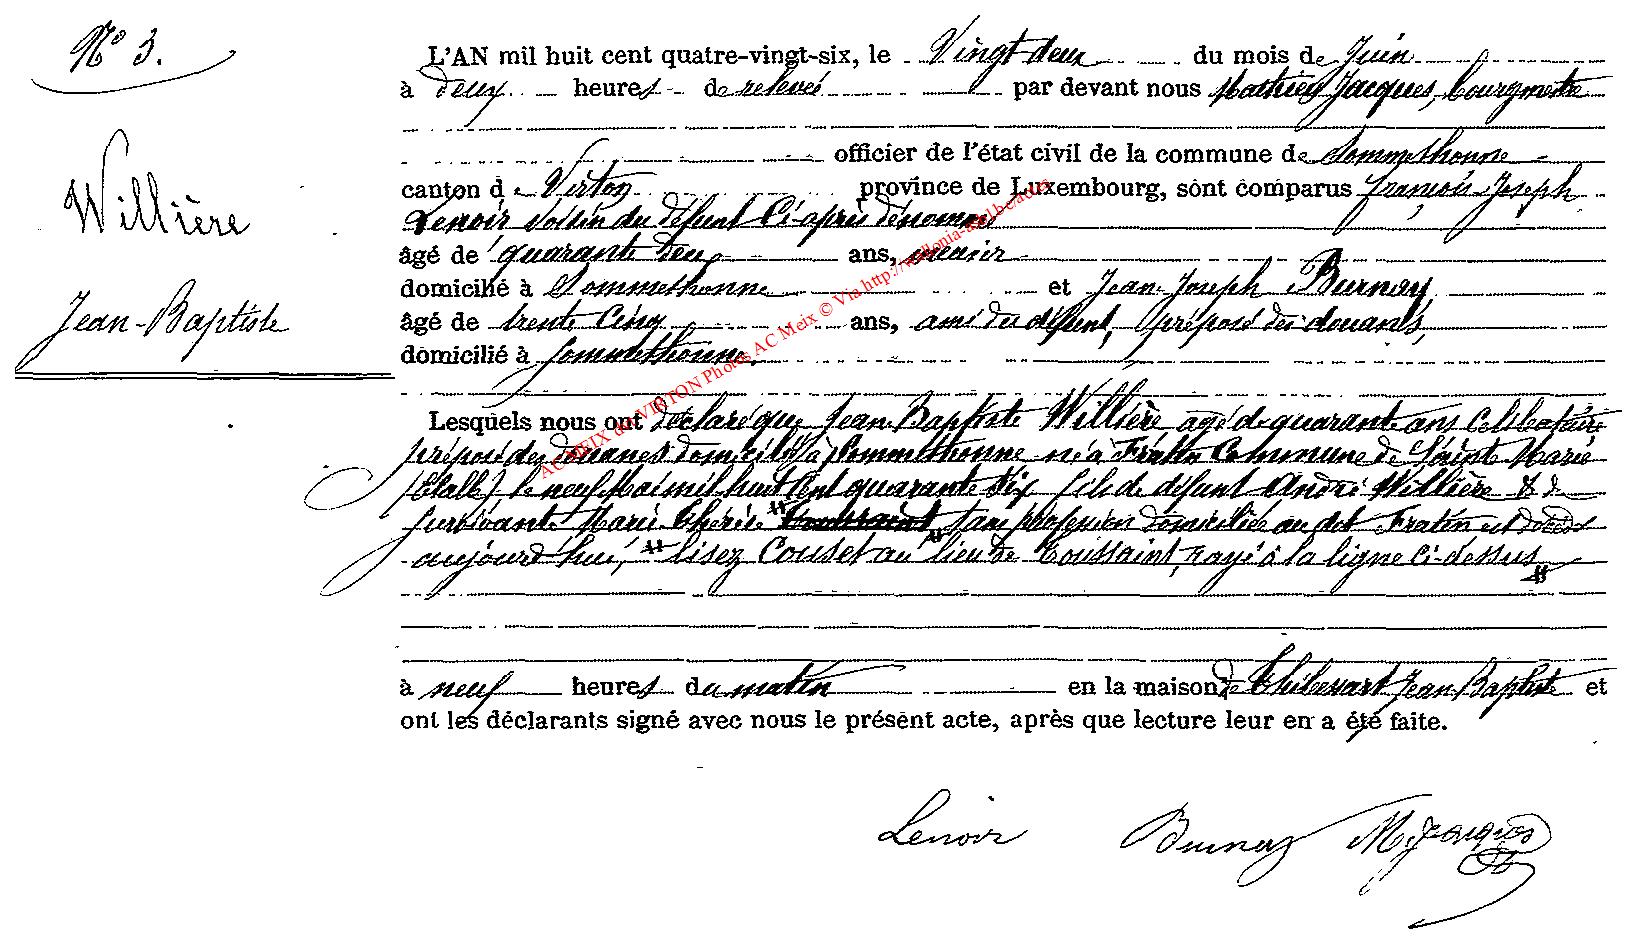 N° 3.
Willière
Jean-Baptiste
L'AN mil huit cent quatre-vingt-six, le Vingt deux du mois de Juin
à deux heures de relevée par devant nous Mathieu Jacques, bourgmestre
officier de l'état civil de la commune de Sommethonne
canton de Virton province de Luxembourg, sont comparus François Joseph
Lenoir voisin du défunt Ci-après dénommé
âgé de quarante deux ans,
domicilié à Sommethonne et Jean Joseph Burnay
âgé de trente Cinq ans, ami du défunt, préposé des douanes,
domicilié à Sommethonne.
Lesquels nous ont déclaré que Jean Baptiste Willière agé de quarante ans celibataire
préposé des douanes domicilié à Sommethonne né à Fratin Commune de Sainte Marie
(Etalle) le neuf Mai mil huit Cent quarante Six fils de défunt André Willière & de
survivante Marie Thérèse # Toussaint # sans profession domiciliée au dit Fratin est décédé
aujourd'hui, # lisez Cousset au lieu de Toussaint, rayé à la ligne ci-dessus #
à neuf heures du matin en la maison de Thibessart Jean Baptiste et
ont les déclarants signé avec nous le présent acte, après que lecture leur en a été faite.
Lenoir Burnay M Jacques
AC MEIX dvt VIRTON Photos AC Meix © Via http://wallonia-asbl.be/actes